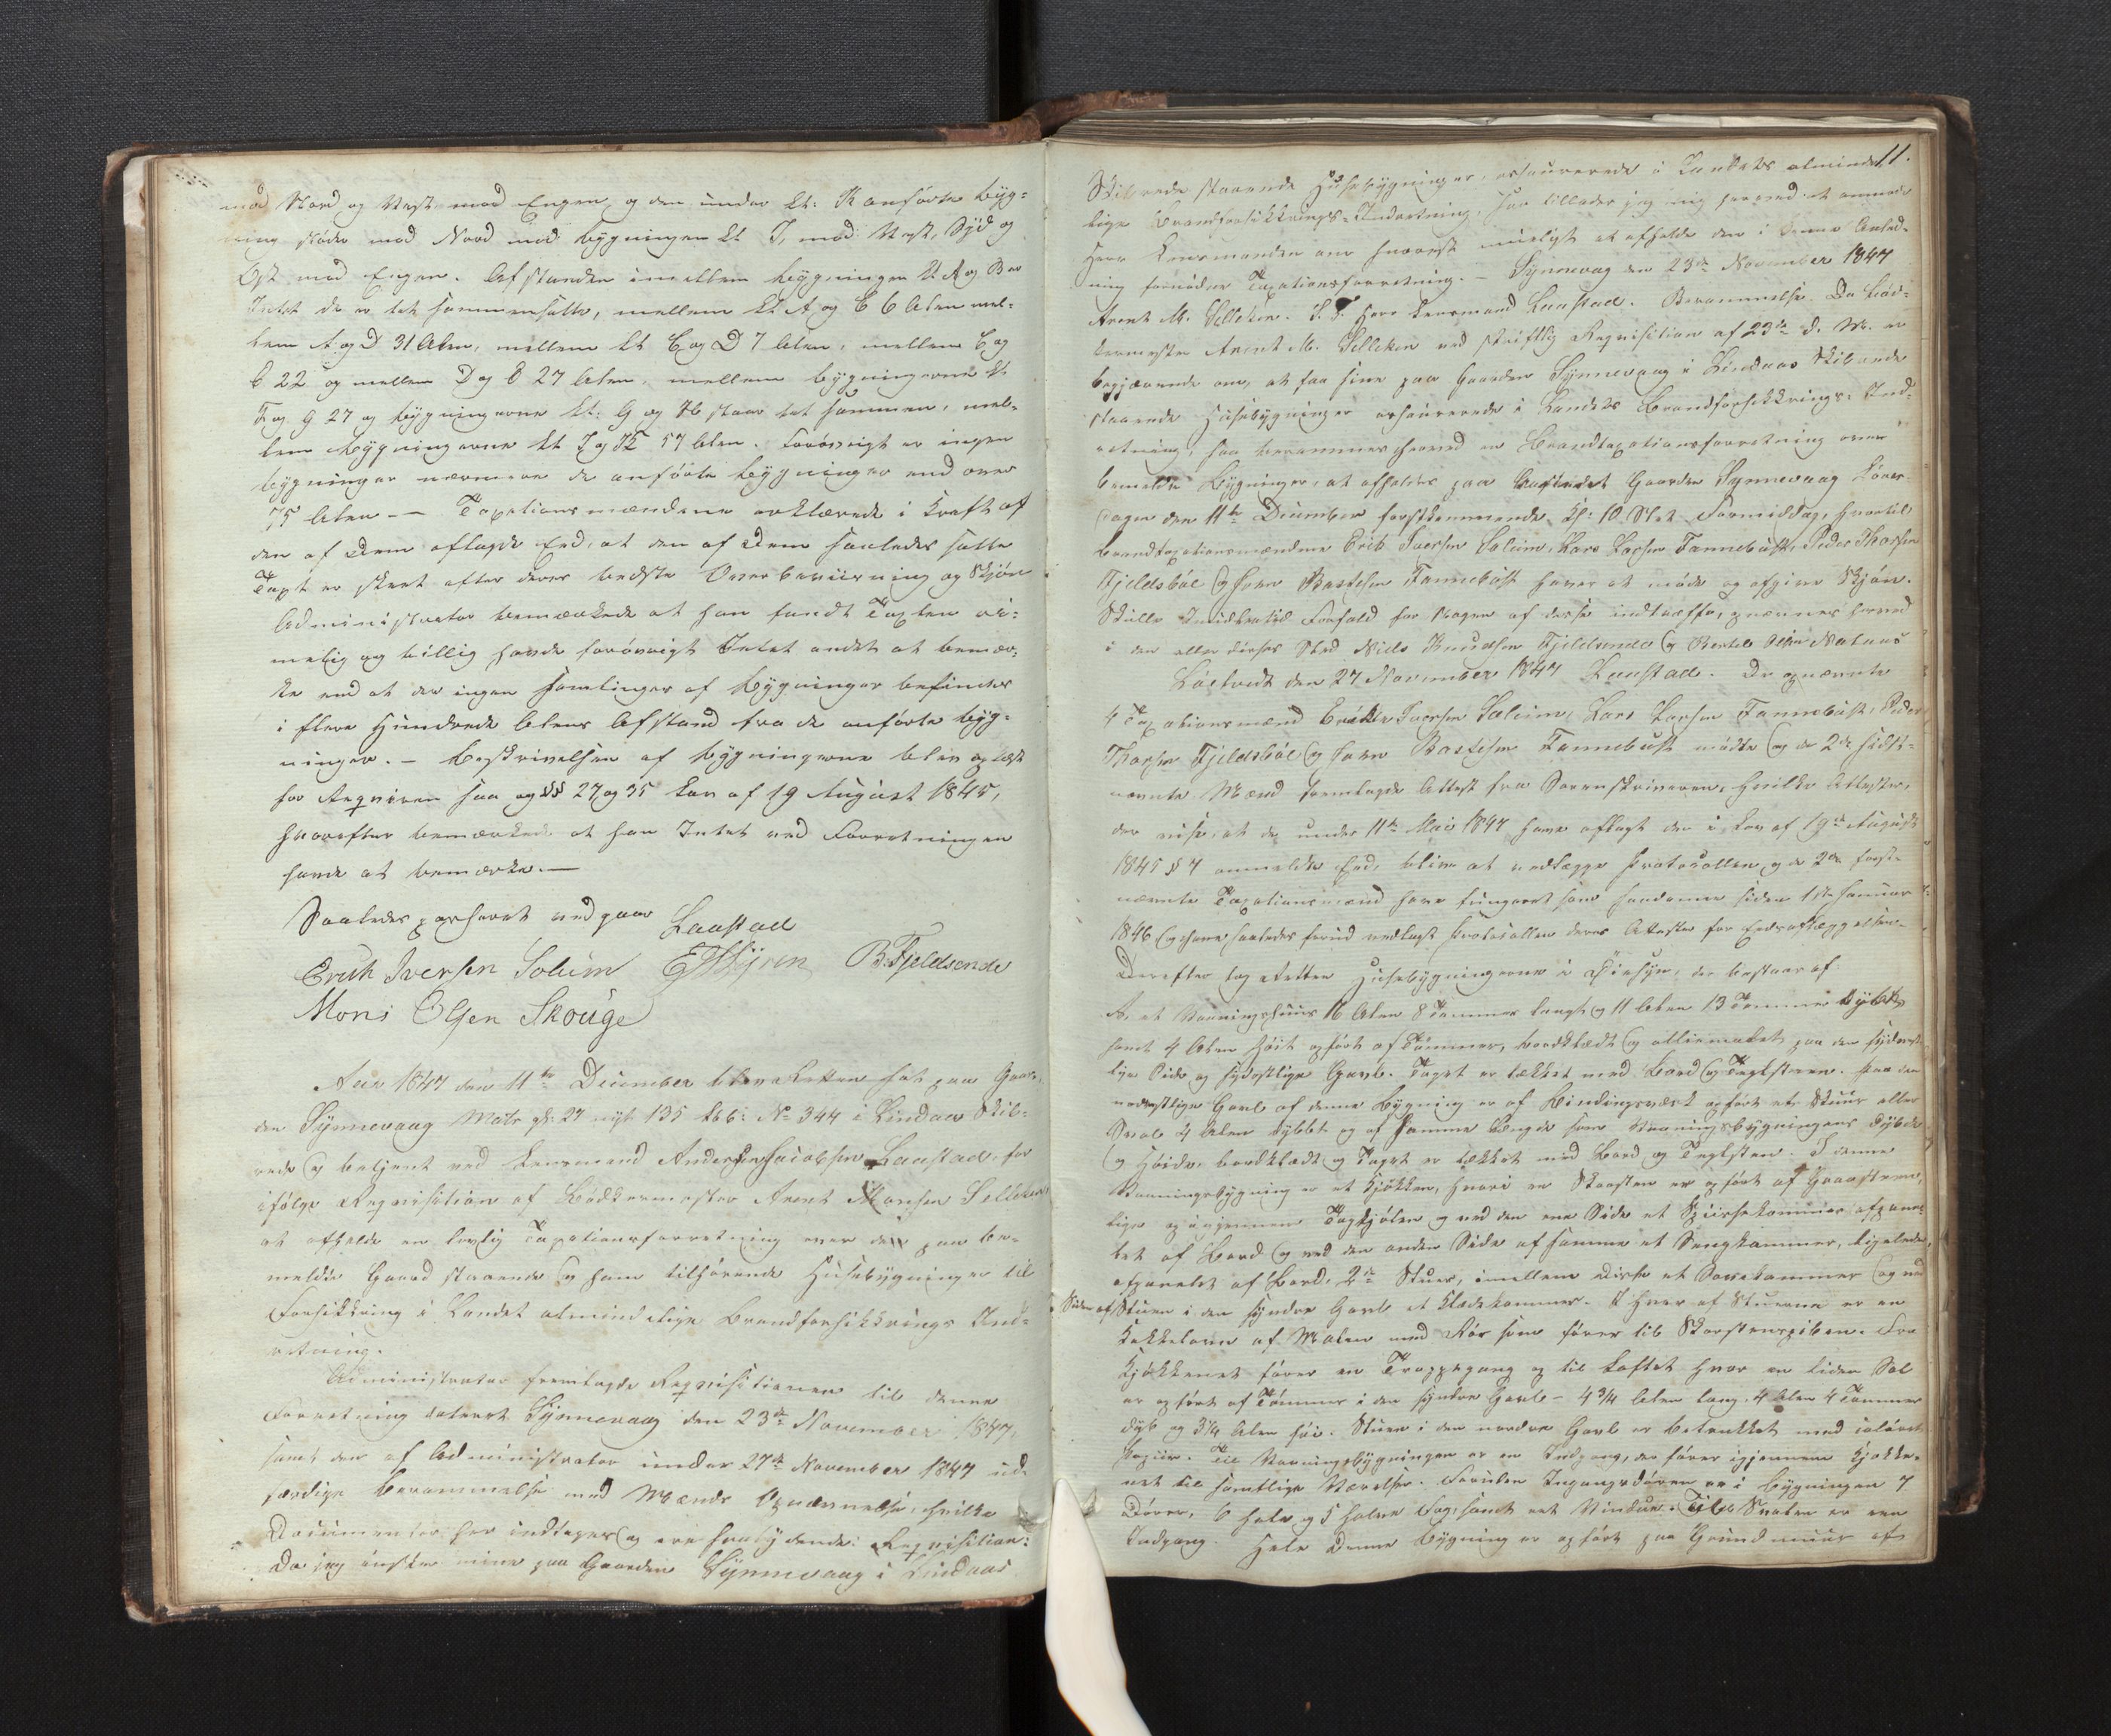 mod Nord og Vest mod Engen, og den under Lt: K anførte Byg=
ning støder mod Nord mod Bygningen Lt I, mod Vest, Syd og
Øst mod Engen. Afstanden imellem Bygningen Lt A og B er
Intet da er tæt sammensatte, mellem Lt A og C 6 Alen mel=
lem A og D 31 Alen, mellem Lt C og D 7 Alen, mellem C og
E 22 og mellem D og E 27 Alen, mellem Bygningerne Lt
F og G 27 og Bygningerne Lt: G og H staar tæt sammen, mel=
lem Bygningerne Lt I og K 57 Alen. Forøvrigt er ingen
Bygninger nærmere de anførte Bygninger end over
75 Alen — Taxationsmændene erklærede i Kraft af
den af Dem aflagde Eed, at den af Dem saaledes satte
Taxt er skeet efter deres bedste Overbeviisning og Skjøn
Administrator bemærkede at han fandt Taxten ri=
melig og billig havde forøvrigt Intet andet at bemær=
ke end at der ingen Samlinger af Bygninger befindes
i flere Hundrede Alens Afstand fra de anførte Byg=
ninger. — Beskrivelsen af Bygningerne blev oplæst
for Reqvirenten saa og §§ 27 og 35 Lov af 19 August 1845,
hvorefter bemærkede at han Intet ved Forretningen
havde at bemærke. —
Saaledes passeret vedgaar Laastad
Erich Iversen Solem B. Fjeldsende
Mons Olsen Skouge
Aar 1847 den 11te December blev Retten sat paa Gaar=
den Synnevaag Matr gl: 27 nyt 135 Løb: No 344 i Lindaas Skib=
rede og betjent ved Lensmand Anders Jacobsen Laastad, for
ifølge Reqvisition af Bødkermester Arent Monsen Selleken
at afholde en lovlig Taxationsforretning over de paa be=
meldte Gaard staaende og ham tilhørende Huusebygninger til
Forsikkring i Landet almindelige Brandforsikkrings Ind=
retning.
Administrator fremlagde Reqvisitionen til denne
Forretning dateret Synnevaag den 23de November 1847,
samt den af Administrator under 27de November 1847 ud=
færdige Berammelse med Mænds Opnævnelse, hvilke
Documenter her indtages og ere saalydende: Reqvisition:
Da jeg ønsker mine paa Gaarden Synnevaag i Lindaas
11.
Skibrede staaende Huusebygninger, assurerede i Landets alminde=
lige Brandforsikkrings=Indretning, saa tillader jeg mig herved at anmode
Herr Lensmanden om snarest mueligt at afholde den i denne Anled=
ning fornødne Taxationsforretning. Synnevaag den 23de November 1847
Arent M. Selleken. S. T. Herr Lensmand Laastad. Berammelse. Da Bød=
kermester Arent M. Selleken ved skriftlig Reqvisition af 23de d. M. er
begjærende om, at faa sine paa Gaarden Synnevaag i Lindaas Skibrede
staaende Huusebygninger assurerede i Landets Brandforsikkrings=Ind=
retning, saa berammes herved en Brandtaxationsforretning over
bemeldte Bygninger, at afholdes paa Aastedet Gaarden Synnevaag Løver=
dagen den 11te December førstkommende Kl: 10 Slet Formiddag, hvortil
Brandtaxationsmændene Erik Iversen Solem, Lars Larsen Fannebust, Peder Thorsen
Fjeldsbøe og Iver Bastesen Fannebust haver at møde og afgive Skjøn.
Skulle Imidlertid Forfald for Nogen af disse indtræffe, opnævnes herved
i den eller disses Sted Niels Knudsen Fjeldsende og Bertel Olsen Nataas
Løstvedt den 27 November 1847 Laastad. De opnævnte
4 Taxationsmænd Erik Iversen Solem, Lars Larsen Fannebust, Peder
Thorsen Fjeldsbøe og Iver Bastesen Fannebust mødte og de 2de sidst=
nævnte Mænd fremlagde Attest fra Sorenskriveren, hvilke Attester,
der viser, at de under 11te Mai 1847 have aflagt den i Lov af 19de August
1845 § 7 anmeldte Eed, blive at vedlægge Protocollen, og de 2de først=
nævnte Taxationsmænd have fungeret som saadanne siden 1ste Januar
1846 og have saaledes forud vedlagt Protocollen deres Attester for Eedsaflæggelsen.
Derefter tog Retten Huusebygningerne i Øiesyn, der bestaar af
A, et Vaaningshuus 16 Alen 8 Tommer langt og 11 Alen 13 Tommer dybt
samt 4 Alen høit opført af Tømmer, bordklædt og oliemalet paa den sydvest=
lige Side og sydostlige Gavl. Taget er tækket med Bord og Teglsteen. Paa den
nordvestlige Gavl af denne Bygning er af Bindingsværk opført et Skuur eller
Sval 4 Alen dybt og af samme Længde som Vaaningsbygningens Dybde
og Høide, bordklædt og Taget er tækket med Bord og Teglsteen. I denne
Vaaningsbygning er et Kjøkken, hvori en Skorsten er opført af Graasteen,
lige op igjennem Tagkjølen og ved den ene Side et Spiisekammer afpane=
let af Bord og ved den anden Side af samme et Sengkammer, ligeledes
afpanelet af Bord, 2de Stuer, imellem Disse et Sovekammer og ved
Siden af Stuen i den syndre Gavl et Klædekammer. I hver af Stuerne er en
Kakkelovn af Malm med Rør som fører til Skorsteenspiben. Fra
Kjøkkenet fører en Trappegang op til Loftet hvor en liden Sal
er opført af Tømmer i den syndre Gavl — 4 3/4 Alen lang, 4 Alen 4 Tommer
dyb og 3 1/4 Alen høi. Stuen i den nordre Gavl er betrukket med coloret
Papiir. Til Vaaningsbygningen er en Indgang, der fører igjennem Kjøkke=
net til samtlige Værelser. Foruden Ingangsdøren er i Bygningen 7
Døre, 6 hele og 5 halve Fag, samt eet Vindue. Til Svalen er een
Indgang. Hele denne Bygning er opført paa Grundmuur af